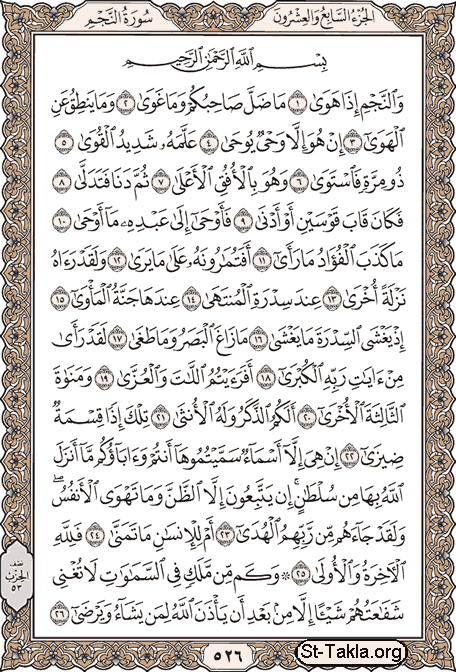 سُورَةُ النَّجْمِ الجُزْءُ السَّابِعُ وَالعِشْرُونَ
بِسْمِ ٱللَّهِ ٱلرَّحْمَٰنِ ٱلرَّحِيمِ
وَٱلنَّجْمِ إِذَا هَوَىٰ ١ مَا ضَلَّ صَاحِبُكُمْ وَمَا غَوَىٰ ٢ وَمَا يَنطِقُ عَنِ
ٱلْهَوَىٰٓ ٣ إِنْ هُوَ إِلَّا وَحْىٌ يُوحَىٰ ٤ عَلَّمَهُۥ شَدِيدُ ٱلْقُوَىٰ ٥
ذُو مِرَّةٍ فَٱسْتَوَىٰ ٦ وَهُوَ بِٱلْأُفُقِ ٱلْأَعْلَىٰ ٧ ثُمَّ دَنَا فَتَدَلَّىٰ ٨
فَكَانَ قَابَ قَوْسَيْنِ أَوْ أَدْنَىٰ ٩ فَأَوْحَىٰٓ إِلَىٰ عَبْدِهِۦ مَآ أَوْحَىٰ ١٠
مَا كَذَبَ ٱلْفُؤَادُ مَا رَأَىٰٓ ١١ أَفَتُمَٰرُونَهُۥ عَلَىٰ مَا يَرَىٰ ١٢ وَلَقَدْ رَءَاهُ
نَزْلَةً أُخْرَىٰ ١٣ عِندَ سِدْرَةِ ٱلْمُنتَهَىٰ ١٤ عِندَهَا جَنَّةُ ٱلْمَأْوَىٰٓ ١٥
إِذْ يَغْشَى ٱلسِّدْرَةَ مَا يَغْشَىٰ ١٦ مَا زَاغَ ٱلْبَصَرُ وَمَا طَغَىٰ ١٧ لَقَدْ رَأَىٰ
مِنْ ءَايَٰتِ رَبِّهِ ٱلْكُبْرَىٰٓ ١٨ أَفَرَءَيْتُمُ ٱللَّٰتَ وَٱلْعُزَّىٰ ١٩ وَمَنَوٰةَ
ٱلثَّالِثَةَ ٱلْأُخْرَىٰٓ ٢٠ أَلَكُمُ ٱلذَّكَرُ وَلَهُ ٱلْأُنثَىٰ ٢١ تِلْكَ إِذًا قِسْمَةٌ
ضِيزَىٰٓ ٢٢ إِنْ هِىَ إِلَّآ أَسْمَآءٌ سَمَّيْتُمُوهَآ أَنتُمْ وَءَابَآؤُكُم مَّآ أَنزَلَ
ٱللَّهُ بِهَا مِن سُلْطَٰنٍ ۚ إِن يَتَّبِعُونَ إِلَّا ٱلظَّنَّ وَمَا تَهْوَى ٱلْأَنفُسُ ۖ
وَلَقَدْ جَآءَهُم مِّن رَّبِّهِمُ ٱلْهُدَىٰٓ ٢٣ أَمْ لِلْإِنسَٰنِ مَا تَمَنَّىٰ ٢٤ فَلِلَّهِ
ٱلْءَاخِرَةُ وَٱلْأُولَىٰ ٢٥ ۞ وَكَم مِّن مَّلَكٍ فِى ٱلسَّمَٰوَٰتِ لَا تُغْنِى
شَفَٰعَتُهُمْ شَيْـًٔا إِلَّا مِنۢ بَعْدِ أَن يَأْذَنَ ٱللَّهُ لِمَن يَشَآءُ وَيَرْضَىٰٓ ٢٦
نصف
الحزب
٥٣
٥٢٦
St-Takla.org